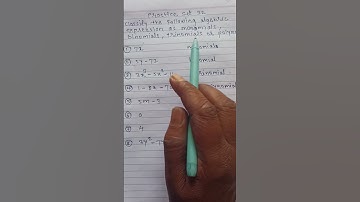 Practice set 32
Classify the following algebraic
expression as monomials,
binomials, trinomials or polyno
① 7x monomials
② 5y-7z nomial
③ 3x³-5x²- nomial
④ 1-8a-7 nomial
⑤ 5m-3
⑥ a
⑦ 4
⑧ 3y²-7